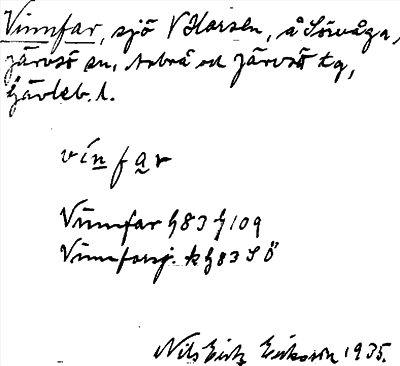 Vinnfar, sjö V Harsen, å Sörvåga,
Järvsö sn, Arbrå och Järvsö tg,
Gävleb. l.
vínfar
Vinnfar h83 h109
Vinnfarsj. k h83 S Ö
Nils Erik Eriksson 1935.